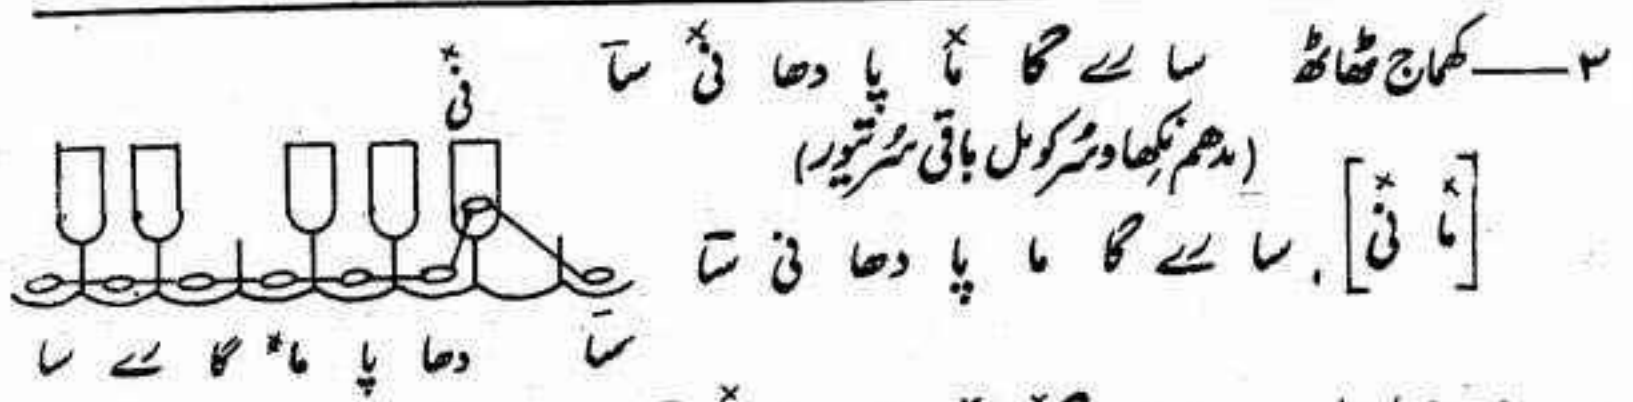 ۳ ــــ کھماج ٹھاٹھ سا رے گا مٓا پا دھا نیٓ سآ
نی
(مدھم نکھاد سُر کومل باقی سُر تیور)
[ما نی] . سا رے گا ما پا دھا نی سآ
سا رے گا ما* پا دھا سآ